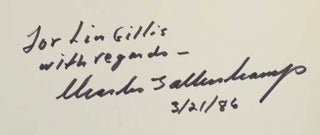 For Lin Gillis
with regards –
Charles Gallenkamp
3/21/86